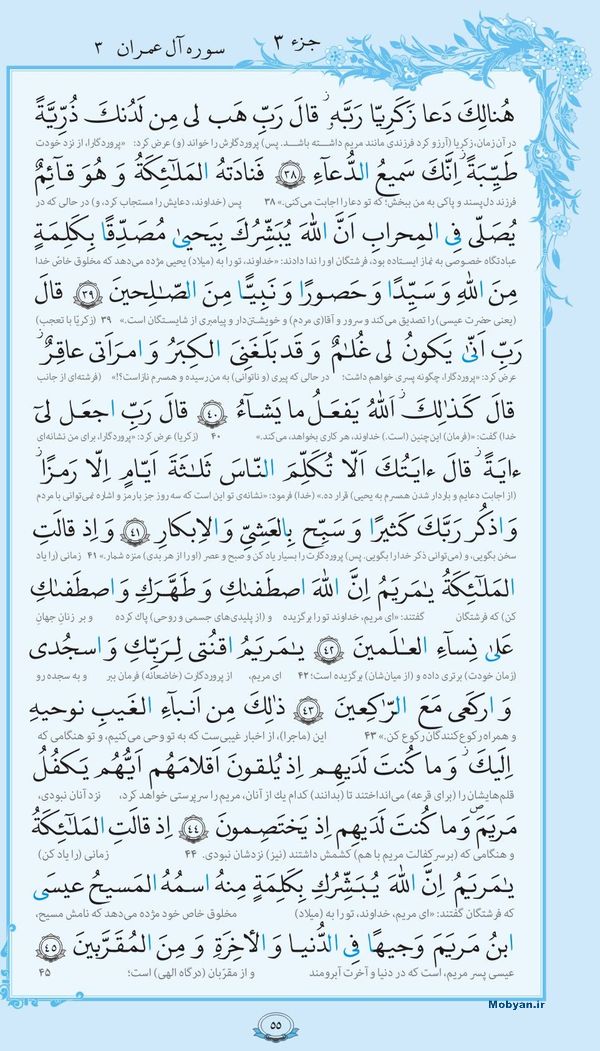 جزء ۳
سوره آل عمران ۳
هُنالِكَ دَعا زَكَرِيّا رَبَّهُ ۖ قالَ رَبِّ هَب لى مِن لَدُنكَ ذُرِّيَّةً
در آن زمان، زکریا (آرزو کرد فرزندی مانند مریم داشته باشد. پس) پروردگارش را خواند (و) عرض کرد: «پروردگارا، از نزد خودت
طَيِّبَةً ۖ اِنَّكَ سَميعُ الدُّعاءِ ﴿۳۸﴾ فَنادَتهُ المَلـٰئِكَةُ وَ هُوَ قائِمٌ
فرزند دل‌پسند و پاکی به من ببخش؛ که تو دعا را اجابت می‌کنی.» ۳۸ پس (خداوند، دعایش را مستجاب کرد، و) در حالی که در
يُصَلّى فِى المِحرابِ اَنَّ اللّٰهَ يُبَشِّرُكَ بِيَحيىٰ مُصَدِّقًا بِكَلِمَةٍ
عبادتگاه خصوصی به نماز ایستاده بود، فرشتگان او را ندا دادند: «خداوند، تو را به (میلاد) یحیی مژده می‌دهد که مخلوق خاصّ خدا
مِنَ اللّٰهِ وَ سَيِّدًا وَ حَصورًا وَ نَبِيًّا مِنَ الصّـٰلِحينَ ﴿۳۹﴾ قالَ
(یعنی حضرت عیسی) را تصدیق می‌کند و سرور و آقا(ی مردم) و خویشتن‌دار و پیامبری از شایستگان است.» ۳۹ (زکریّا با تعجب)
رَبِّ اَنّىٰ يَكونُ لى غُلـٰمٌ وَ قَد بَلَغَنِىَ الكِبَرُ وَ امرَاَتى عاقِرٌ ۖ
عرض کرد: «پروردگارا، چگونه پسری خواهم داشت؛ در حالی که پیری (و ناتوانی) به من رسیده و همسرم نازاست؟!» (فرشته‌ای از جانب
قالَ كَذٰلِكَ اللّٰهُ يَفعَلُ ما يَشاءُ ﴿۴۰﴾ قالَ رَبِّ اجعَل لى
خدا) گفت: «(فرمان) این‌چنین (است.) خداوند، هر کاری بخواهد، می‌کند.» ۴۰ (زکریا) عرض کرد: «پروردگارا، برای من نشانه‌ای
ءايَةً ۖ قالَ ءايَتُكَ اَلّا تُكَلِّمَ النّاسَ ثَلـٰثَةَ اَيّامٍ اِلّا رَمزًا ۗ
(از اجابت دعایم و باردار شدن همسرم به یحیی) قرار ده.» (خدا) فرمود: «نشانه‌ی تو این است که سه روز جز با رمز و اشاره نمی‌توانی با مردم
وَ اذكُر رَبَّكَ كَثيرًا وَ سَبِّح بِالعَشِىِّ وَ الاِبكارِ ﴿۴۱﴾ وَ اِذ قالَتِ
سخن بگویی، و (می‌توانی ذکر خدا را بگویی. پس) پروردگارت را بسیار یاد کن و صبح و عصر (او را از هر بدی) منزه شمار.» ۴۱ زمانی (را یاد
المَلـٰئِكَةُ يـٰمَريَمُ اِنَّ اللّٰهَ اصطَفىٰكِ وَ طَهَّرَكِ وَ اصطَفىٰكِ
کن) که فرشتگان گفتند: «ای مریم، خداوند تو را برگزیده و (از پلیدی‌های جسمی و روحی) پاک کرده و بر زنانِ جهانِ
عَلىٰ نِساءِ العـٰلَمينَ ﴿۴۲﴾ يـٰمَريَمُ اقنُتى لِرَبِّكِ وَ اسجُدى
(زمان خودت) برتری داده و (از میان‌شان) برگزیده است؛ ۴۲ ای مریم، از پروردگارت (خاضعانه) فرمان ببر و به سجده رو
وَ اركَعى مَعَ الرّٰكِعينَ ﴿۴۳﴾ ذٰلِكَ مِن اَنباءِ الغَيبِ نوحيهِ
و همراه رکوع‌کنندگان رکوع کن.» ۴۳ این (ماجرا)، از اخبار غیبی‌ست که به تو وحی می‌کنیم، و تو هنگامی که
اِلَيكَ ۚ وَ ما كُنتَ لَدَيهِم اِذ يُلقونَ اَقلامَهُم اَيُّهُم يَكفُلُ
قلم‌هایشان را (برای قرعه) می‌انداختند تا (بدانند) کدام یک از آنان، مریم را سرپرستی خواهد کرد، نزد آنان نبودی،
مَريَمَ وَ ما كُنتَ لَدَيهِم اِذ يَختَصِمونَ ﴿۴۴﴾ اِذ قالَتِ المَلـٰئِكَةُ
و هنگامی که (بر سر کفالت مریم با هم) کشمش داشتند (نیز) نزدشان نبودی. ۴۴ زمانی (را یاد کن)
يـٰمَريَمُ اِنَّ اللّٰهَ يُبَشِّرُكِ بِكَلِمَةٍ مِنهُ اسمُهُ المَسيحُ عيسَى
که فرشتگان گفتند: «ای مریم، خداوند، تو را به (میلاد) مخلوق خاص خود مژده می‌دهد که نامش مسیح،
ابنُ مَريَمَ وَجيهًا فِى الدُّنيا وَ الأخِرَةِ وَ مِنَ المُقَرَّبينَ ﴿۴۵﴾
عیسی پسر مریم، است که در دنیا و آخرت آبرومند و از مقرّبان (درگاه الهی) است؛ ۴۵
۵۵
Mobyan.ir